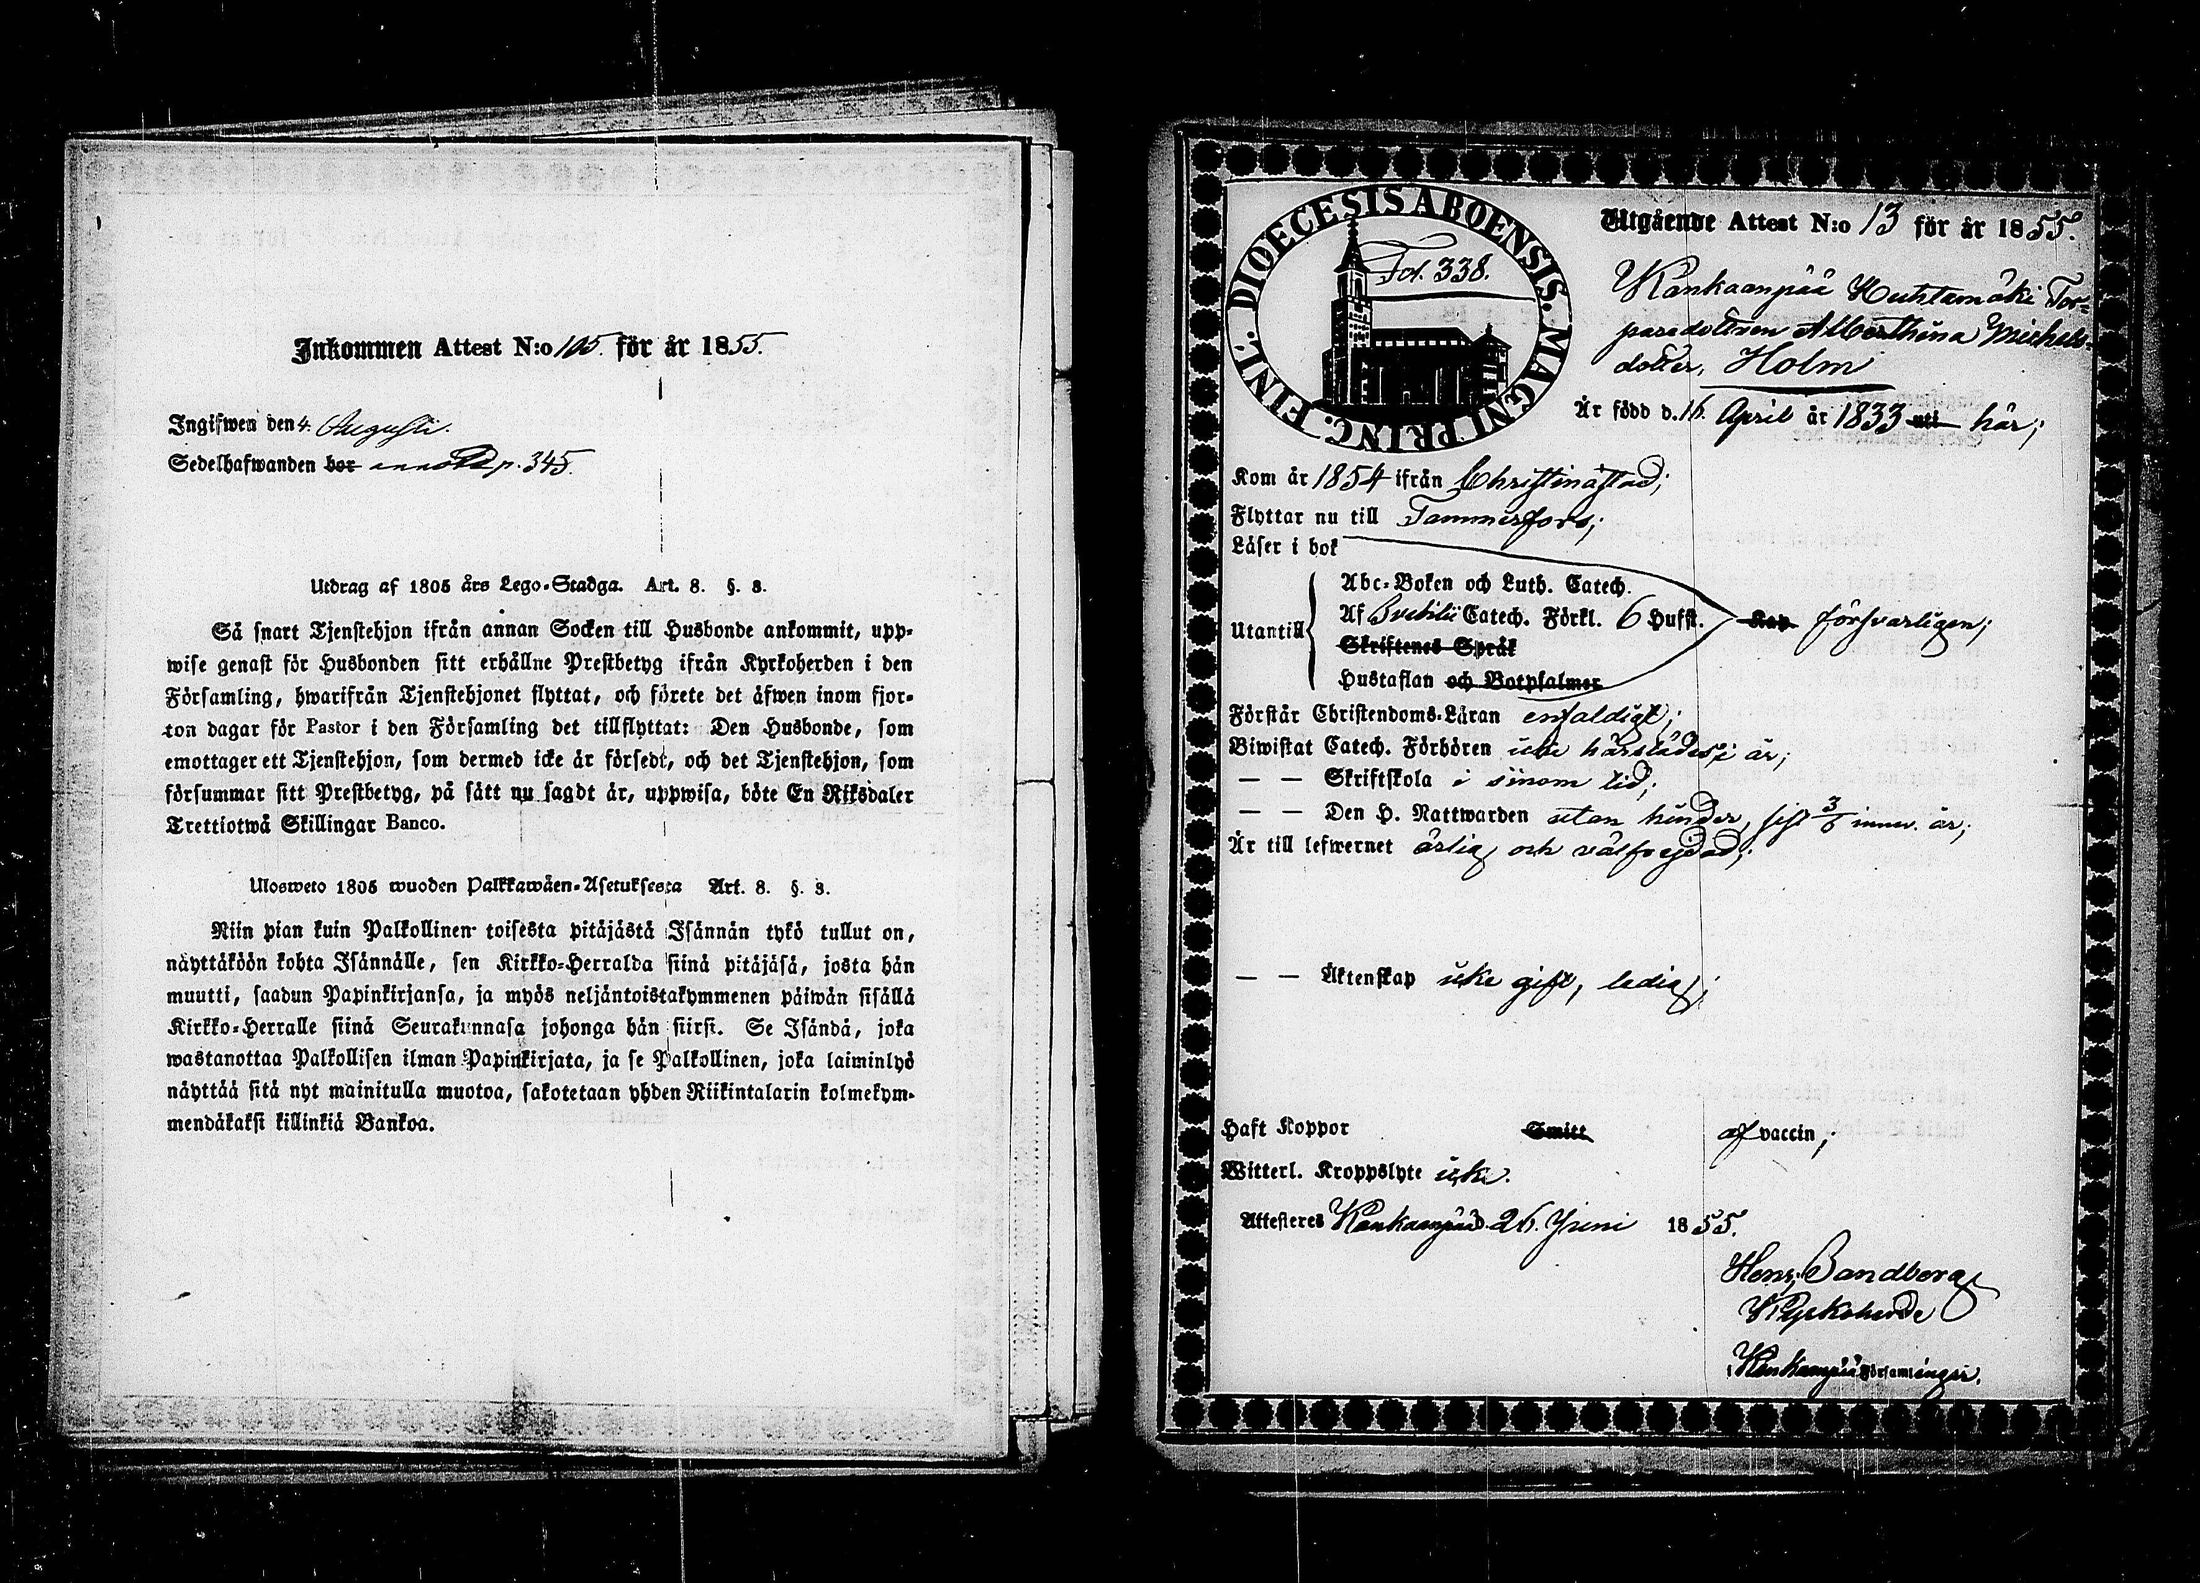 Inkommen Attest N:o 105. för år 1855.
Ingifwen den 4. Augusti.
Sedelhafwanden bor annot. p. 345.
Utdrag af 1805 års Lego-Stadga. Art. 8. §. 3.
Så snart Tjenstehjon ifrån annan Socken till Husbonde ankommit, upp-
wise genast för Husbonden sitt erhållne Prestbetyg ifrån Kyrkoherden i den
Församling, hwarifrån Tjenstehjonet flyttat, och förete det äfwen inom fjor-
ton dagar för Pastor i den Församling det tillflyttat: Den Husbonde, som
emottager ett Tjenstehjon, som dermed icke är försedt, och det Tjenstehjon, som
försummar sitt Prestbetyg, på sätt nu sagdt är, uppwisa, böte En Riksdaler
Trettiotwå Skillingar Banco.
Ulosweto 1805 wuoden Palkkawäen-Asetuksesta Art. 8. §. 3.
Niin pian kuin Palkollinen toisesta pitäjästä Isännän tykö tullut on,
näyttäköön kohta Isännälle, sen Kirkko-Herralda siinä pitäjäsä, josta hän
muutti, saadun Papinkirjansa, ja myös neljäntoistakymmenen päiwän sisällä
Kirkko-Herralle siinä Seurakunnasa johonga hän siirsi. Se Isändä, joka
wastanottaa Palkollisen ilman Papinkirjata, ja se Palkollinen, joka laiminlyö
näyttää sitä nyt mainitulla muotoa, sakotetaan yhden Riikintalarin kolmekym-
mendäkaksi killinkiä Bankoa.
DIOECESIS ABOENSIS. MAGNI PRINC. FINL.
Fol. 338.
Utgående Attest N:o 13 för år 1855.
Kankaanpää Huhtamäki Tor-
paredottren Alberthina Michels-
dotter, Holm
Är född d. 16. April år 1833 uti här;
Kom år 1854 ifrån Christinæstad;
Flyttar nu till Tammerfors;
Läser i bok
Utantill
Abc-Boken och Luth. Catech.
Af Svebilii Catech. Förkl. 6 Hufst. Kap försvarligen;
Skriftenes Språk
Hustaflan och Botpsalmer
Förstår Christendoms-Läran enfaldigt;
Biwistat Catech. Förhören icke härstädes i år;
— — Skriftskola i sinom tid;
— — Den H. Nattwarden utan hinder, sist 3/6 innew. år;
Är till lefwernet ärlig och välfrejdad;
— — Äktenskap icke gift, ledig;
Haft Koppor Smitt af vaccin;
Witterl. Kroppslyte icke.
Attesteres Kankaanpää d. 26. Juni 1855.
Henr. Sandberg
Kyrkoherde
i Kankaanpää Församlingar.